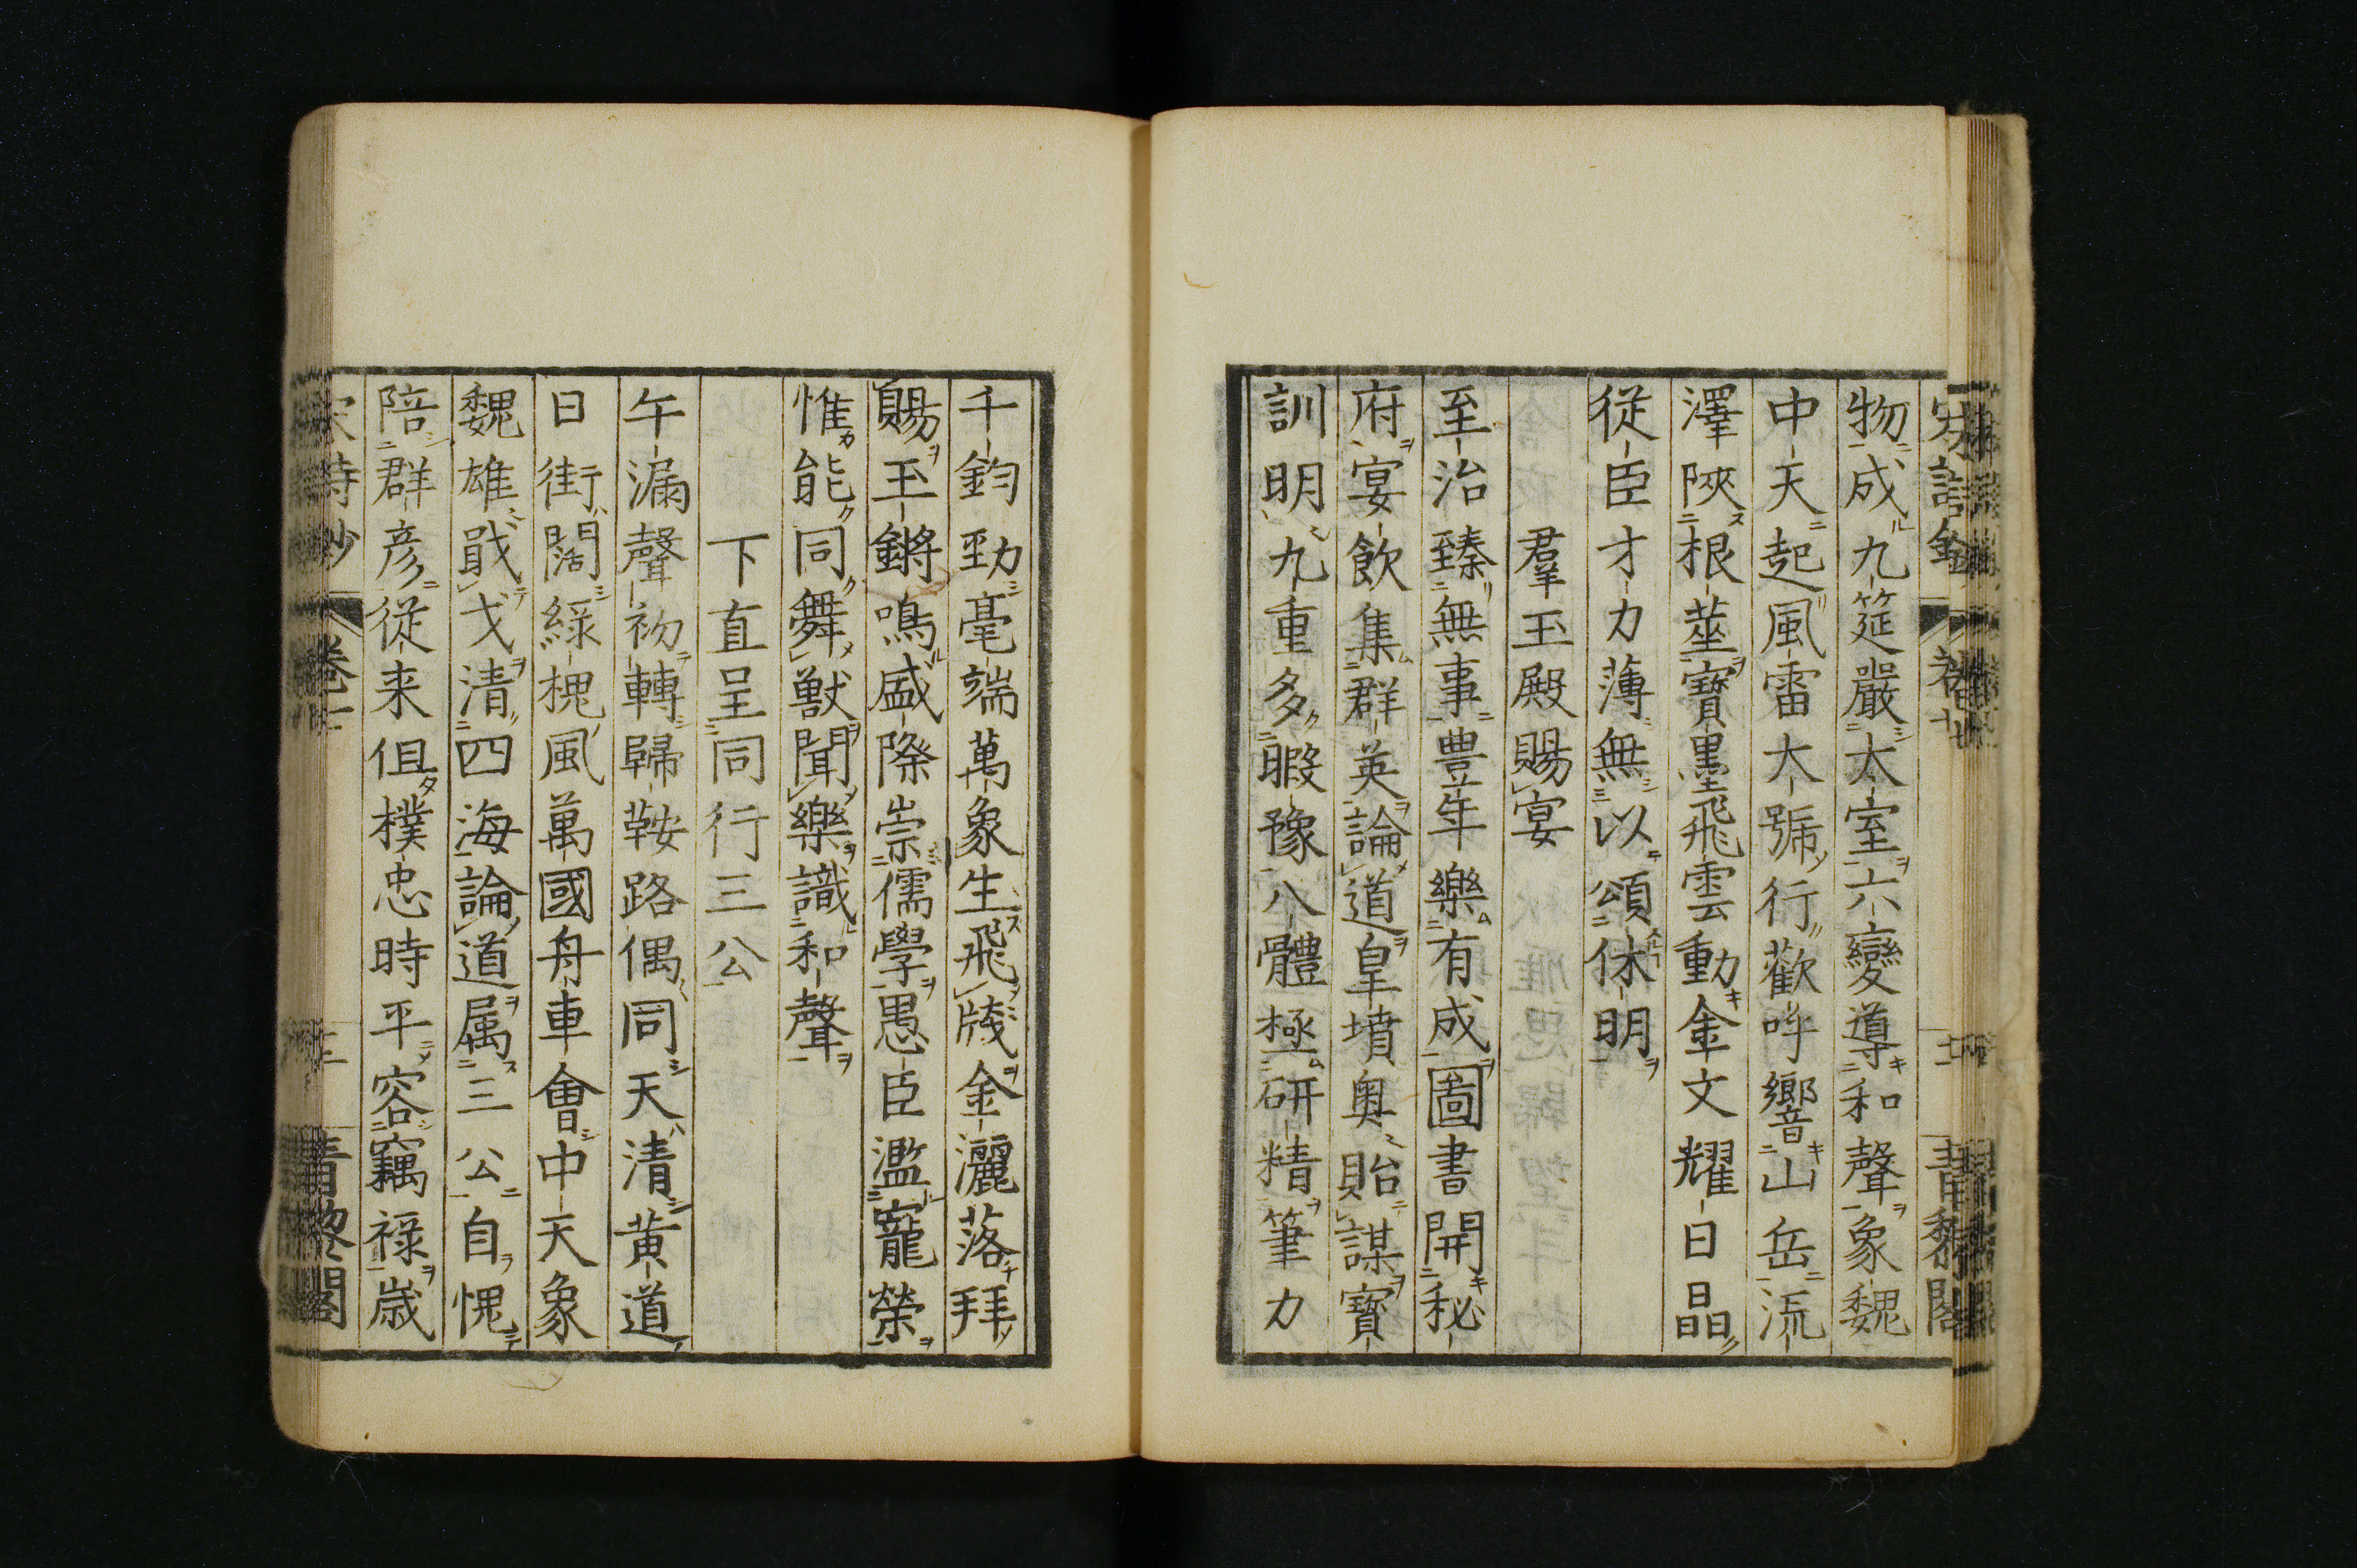 物成九筵嚴太室六變導和聲象魏
中天起風雷大號行歡呼響山岳流
澤陜根莖寶墨飛雲動金文耀日晶
從臣才力薄無以頌休明
羣玉殿賜宴
至治臻無事豊年樂有成圖書開秘
府宴飲集群英論道皇墳奥貽謀寶
訓明九重多暇豫八體極研精筆力
千鈞勁毫端萬象生飛牋金灑落拜
賜玉鏘鳴盛際崇儒學愚臣濫寵榮
惟能同舞獣聞樂識和聲
下直呈同行三公
午漏聲初轉歸鞍路偶同天清黄道
日街闊緑槐風萬國舟車會中天象
魏雄戢戈清四海論道属三公自愧
陪群彦從来但樸忠時平容竊禄歳
宋詩鈔 卷一 青黎閣